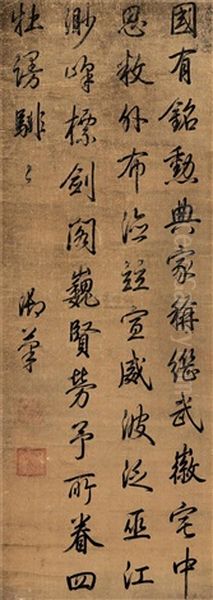 國有銘勳典家稱繼武徽宅中
思敉外布竝宣威波泛巫江
渺峰標劍閣巍賢勞予所眷四
牡謌騑〻
御筆